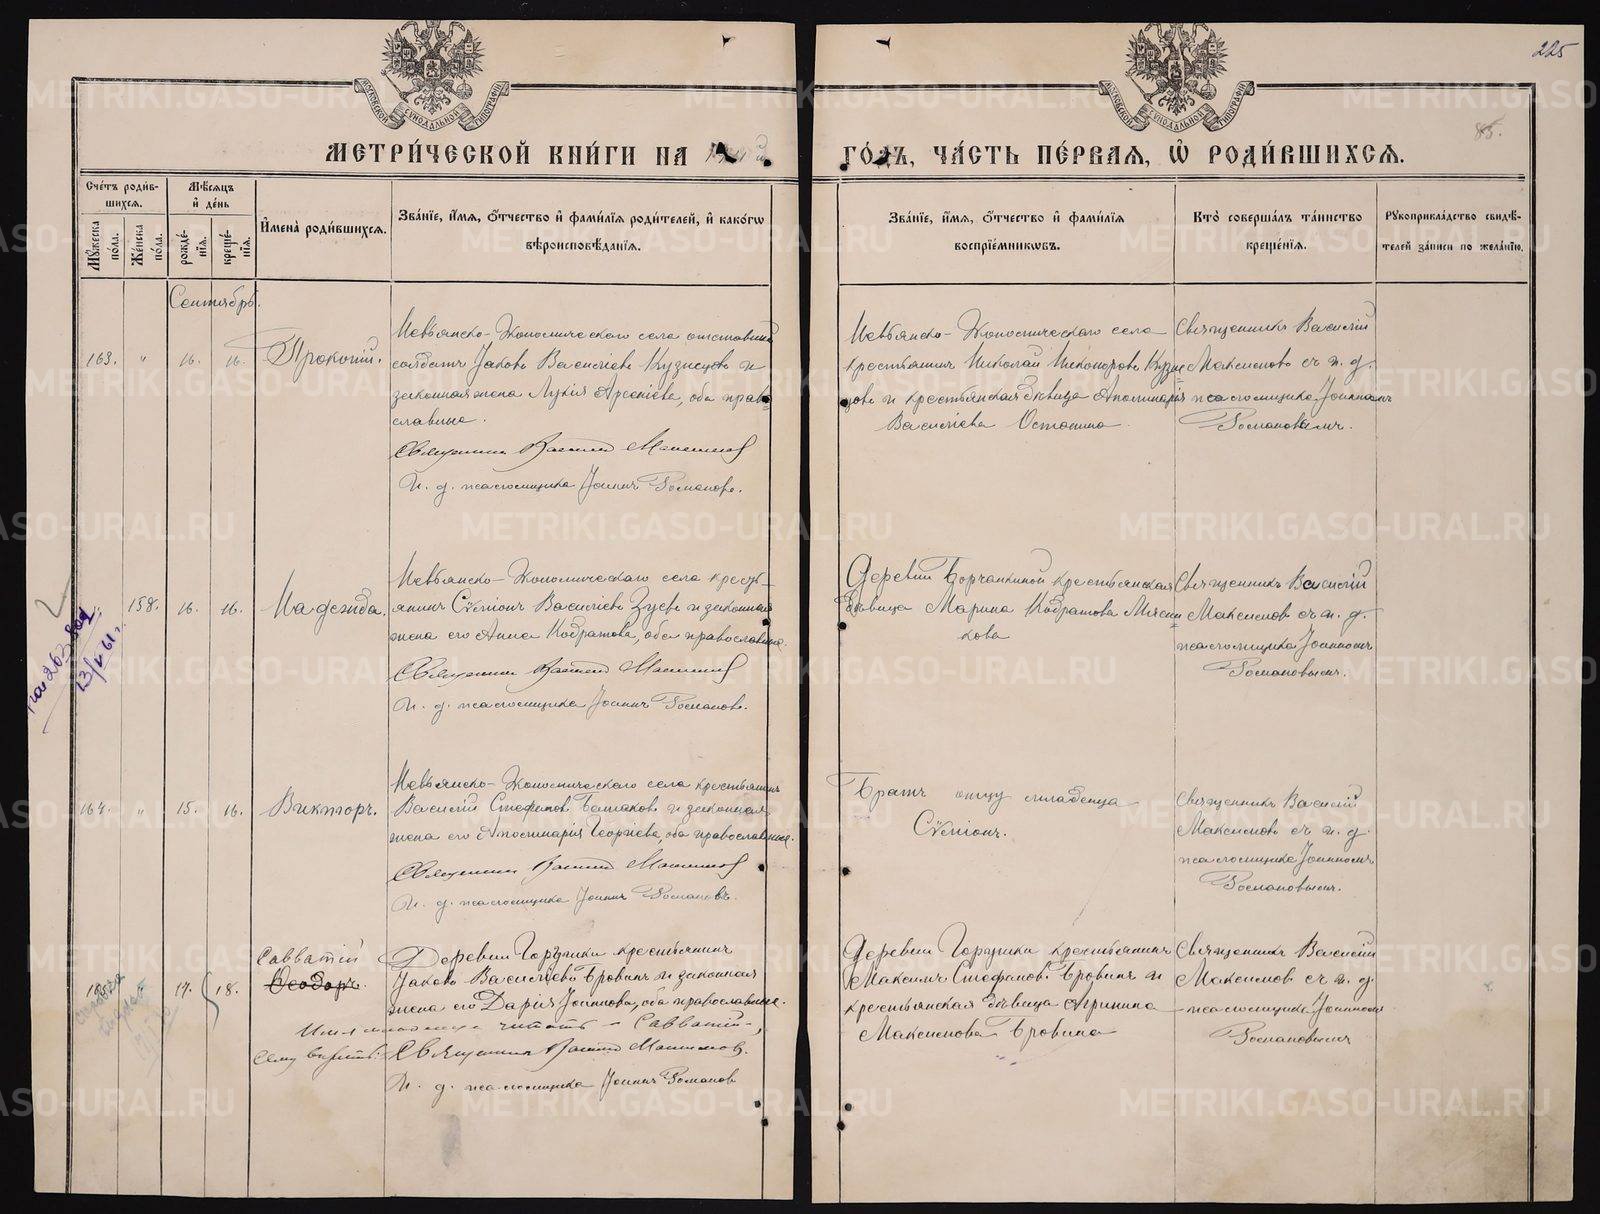 225
85.
МОСКОВСКОЙ СѴНОДАЛЬНОЙ ТИПОГРАФІИ
МОСКОВСКОЙ СѴНОДАЛЬНОЙ ТИПОГРАФІИ
МЕТРИ́ЧЕСКОЙ КНИ́ГИ НА
ГО́ДЪ, ЧА́СТЬ ПЕ́РВАЯ, Ѡ҆ РОДИ́ВШИХСЯ.
Сче́тъ роди́в-
шихся.
Мꙋ́жеска по́ла.
Же́нска по́ла.
Мѣ́сяцъ
и҆ де́нь
рожде́-
нїя.
креще́-
нїя.
И҆мена̀ роди́вшихся.
Зва́нїе, и҆́мя, ѻ҆́тчество и҆ фами́лїя роди́телей, и҆ како́гѡ
вѣроисповѣ́данїя.
Зва́нїе, и҆́мя, ѻ҆́тчество и҆ фами́лїя
воспрїе́мниковъ.
Кто̀ соверша́лъ та́инство
креще́нїя.
Рꙋкоприкла́дство свидѣ́-
телей за́писи по жела́нїю.
Сентябрь.
163. " 16. 16. Прокопій.
Невьянско-Экономическаго села отставный
солдатъ Іаковъ Василіевъ Кузнецовъ и
законная жена Лукія Арсеніева, оба право-
славные.
Священникъ Василій Максимовъ
И. д. псаломщика Іоаннъ Романовъ.
Невьянско-Экономическаго села
крестьянинъ Николай Никаноровъ Кузне
цовъ и крестьянская дѣвица Аполинарія
Василіева Останина.
Священникъ Василій
Максимовъ съ и. д.
псаломщика Іоанномъ
Романовымъ.
158. 16. 16. Надежда.
Невьянско-Экономическаго села кресть-
янинъ Сѵмеонъ Василіевъ Зуевъ и законная
жена его Анна Кодратова, оба православные.
Священникъ Василій Максимовъ
И. д. псаломщика Іоаннъ Романовъ.
Деревни Борчаниной крестьянская
дѣвица Марина Кодратова Мясни
кова
Священникъ Василій
Максимовъ съ и. д.
псаломщика Іоанномъ
Романовымъ.
13/V 61 г.
164. " 15. 16. Викторъ.
Невьянско-Экономическаго села крестьянинъ
Василій Стефановъ и законная
жена его Аполинарія Георгіева, оба православные.
Священникъ Василій Максимовъ
И. д. псаломщика Іоаннъ Романовъ.
Братъ отцу младенца
Сѵмеонъ.
Священникъ Василій
Максимовъ съ и. д.
псаломщика Іоанномъ
Романовымъ.
165. 17. 18. Савватій
Ѳеодоръ.
Деревни Горушки крестьянинъ
Іаковъ Василіевъ Бровинъ и законная
жена его Дарія Іоаннова, оба православные.
Имя младенца читать "Савватій",
сему вѣрить: Священникъ Василій Максимовъ.
И. д. псаломщика Іоаннъ Романовъ
Деревни Горушки крестьянинъ
Максимъ Стефановъ Бровинъ и
крестьянская дѣвица Агрипина
Максимова Бровина
Священникъ Василій
Максимовъ съ и. д.
псаломщика Іоанномъ
Романовымъ
METRIKI.GASO-URAL.RU